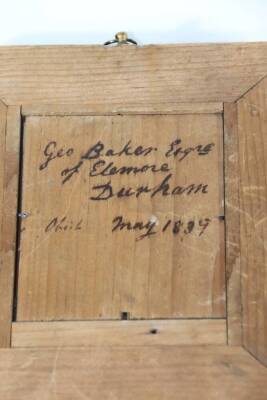 Geo Baker Esqre
of Elemore
Durham
Obiit May 1837